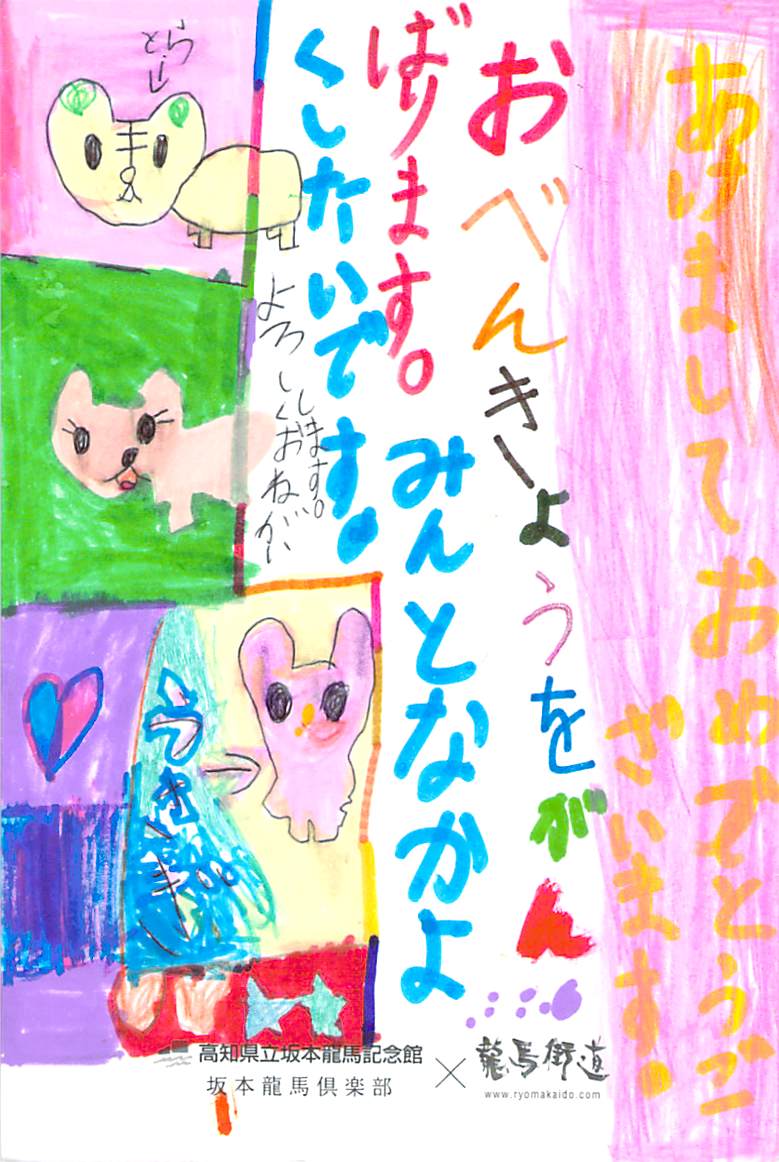 あけましておめでとうご
ざいます。
おべんきょうをがん
ばります。
みんとなかよ
くしたいです。
よろしくおねがい
します。
とら
うさぎ
高知県立坂本龍馬記念館
坂本龍馬倶楽部
×
龍馬街道
www.ryomakaido.com